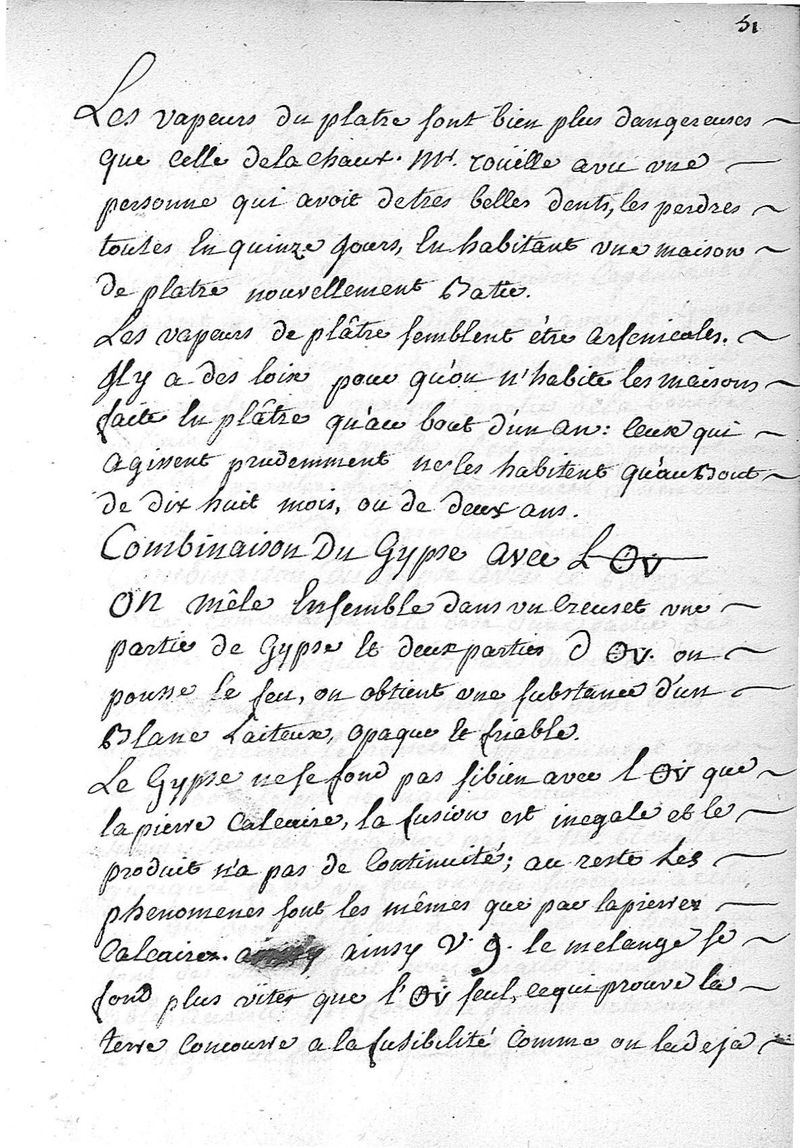 51
Les vapeurs du platre sont bien plus dangereuses
que celle delachaux. Mr. rouelle avu une
personne qui avoit detres belles dents, les perdres
toutes En quinze Jours, En habitant une maison
de platre nouvellement Batie.
Les vapeurs de plâtre semblent être arsenicales.
Ily a des loix pour qu'on n'habite les maisons
faite En plâtre qu'au bout d'un an: Ceux qui
agissent prudemment ne les habitent qu'auBout
de dix huit mois, ou de deux ans.
Combinaison Du Gypse avec L
On mêle Ensemble dans un Creuset une
partie de Gypse Et deux parties d on
pousse le feu, on obtient une substance d'un
Blanc Laiteux, opaque Et friable.
Le Gypse nese fond pas sibien avec l que
lapierre Calcaire, la fusion est inegale et le
produit n'a pas de Continuité; au reste Les
phenomenes sont les mêmes que par lapierrez
Calcairez. ainsy V. g. le melange se
fond plus vites que l' seul, cequi prouve la
terre Concourre a la fusibilité Comme on ladeja